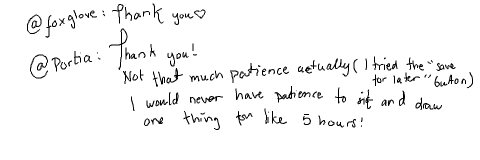 @foxglove: Thank you♡
@Portia: Thank you!
Not that much patience actually( I tried the "save
for later" button)
I would never have patience to sit and draw
one thing for like 5 hours!